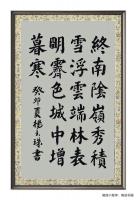 終南陰嶺秀積
雪浮雲端林表
明霽色城中增
暮寒 癸卯夏楊玉珠書